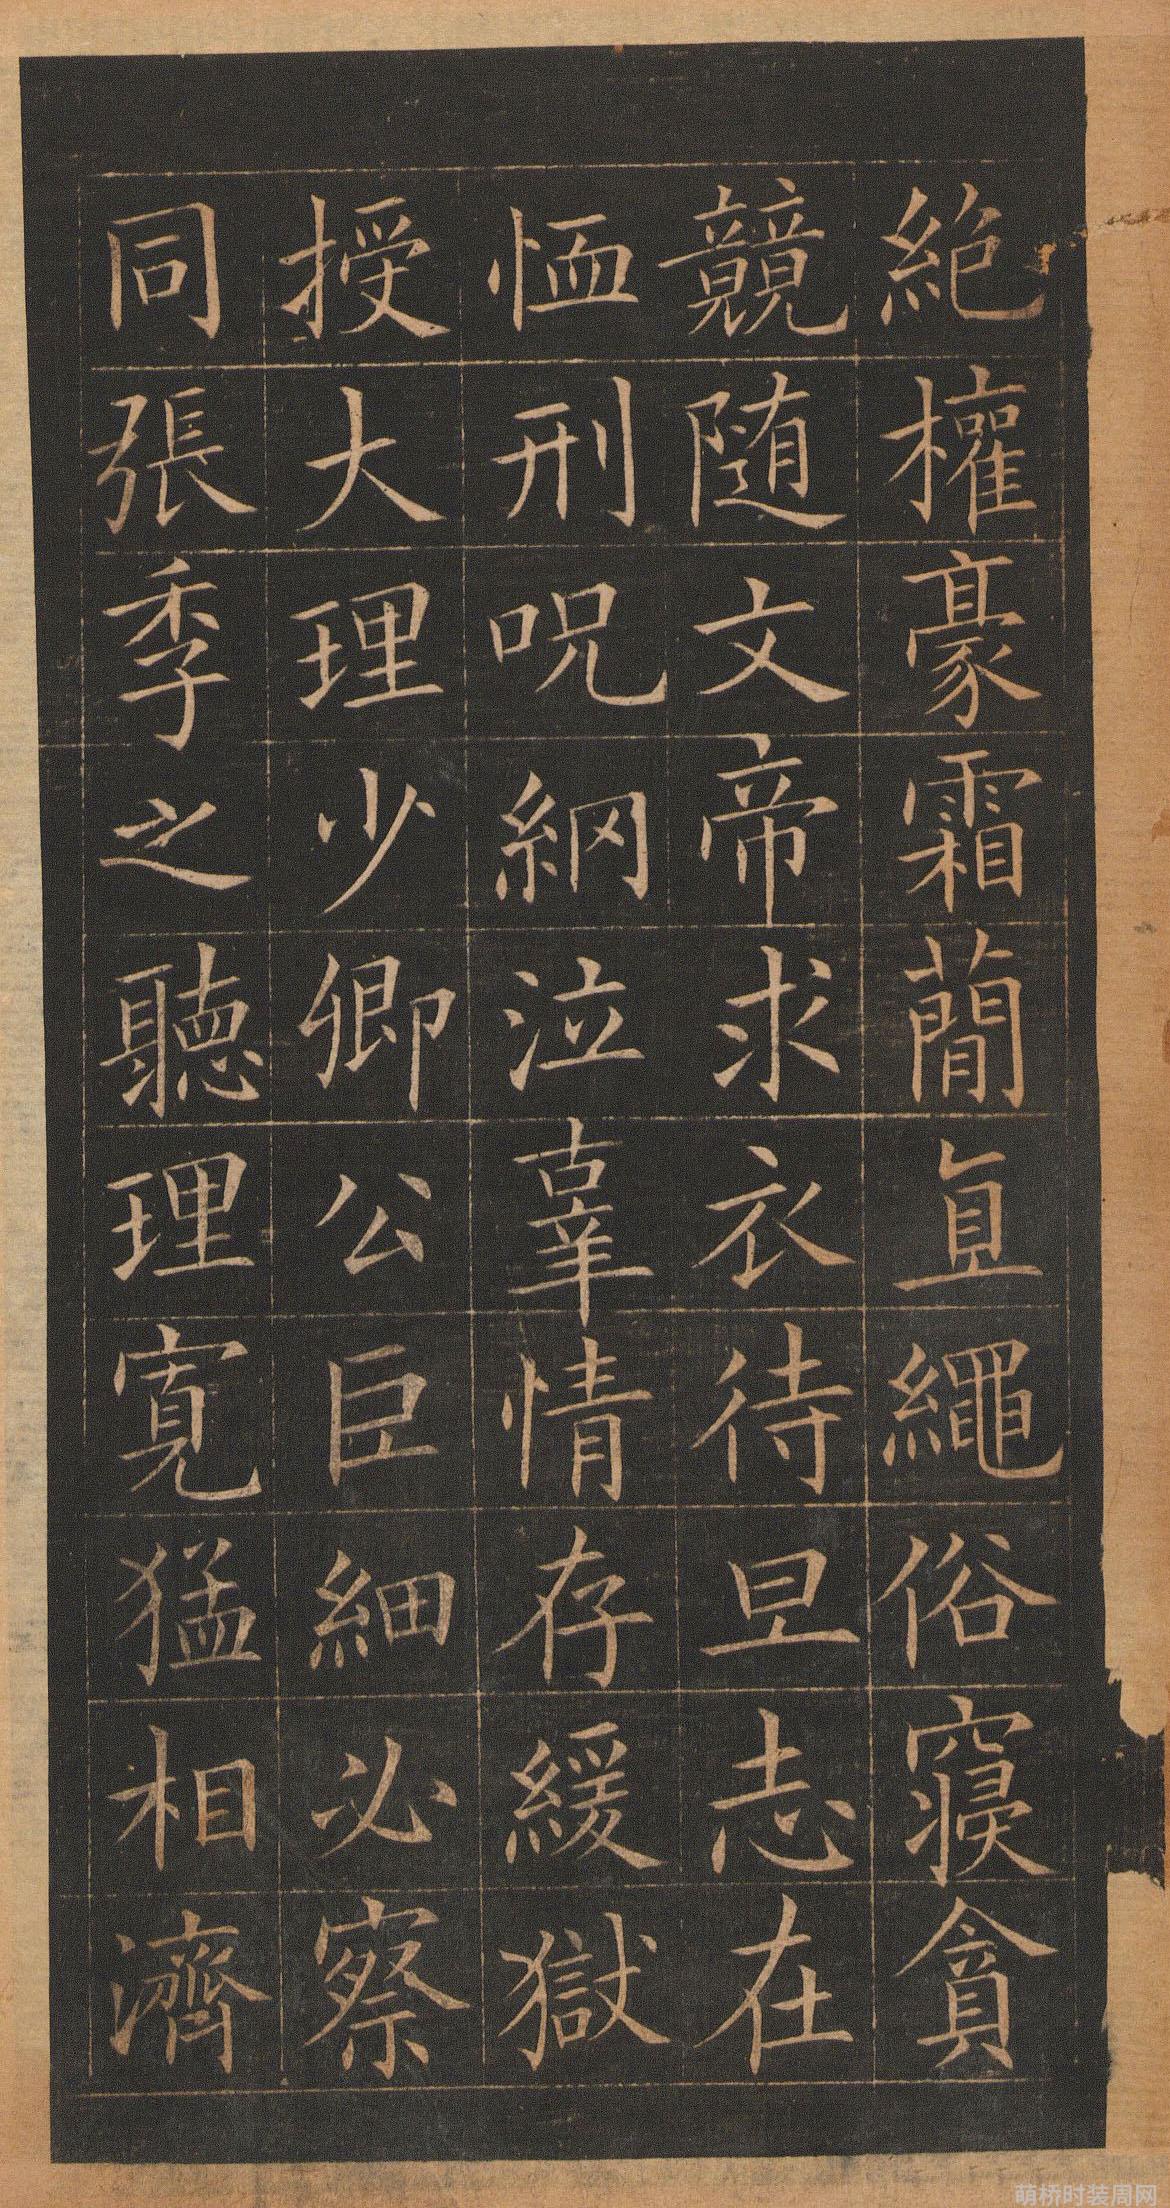 絶權豪霜蕳直繩俗寝貪
競随文帝求衣待旦志在
恤刑呪網泣辜情存緩獄
授大理少卿公巨細必察
同張季之聽理寛猛相濟
萌桥时装周网